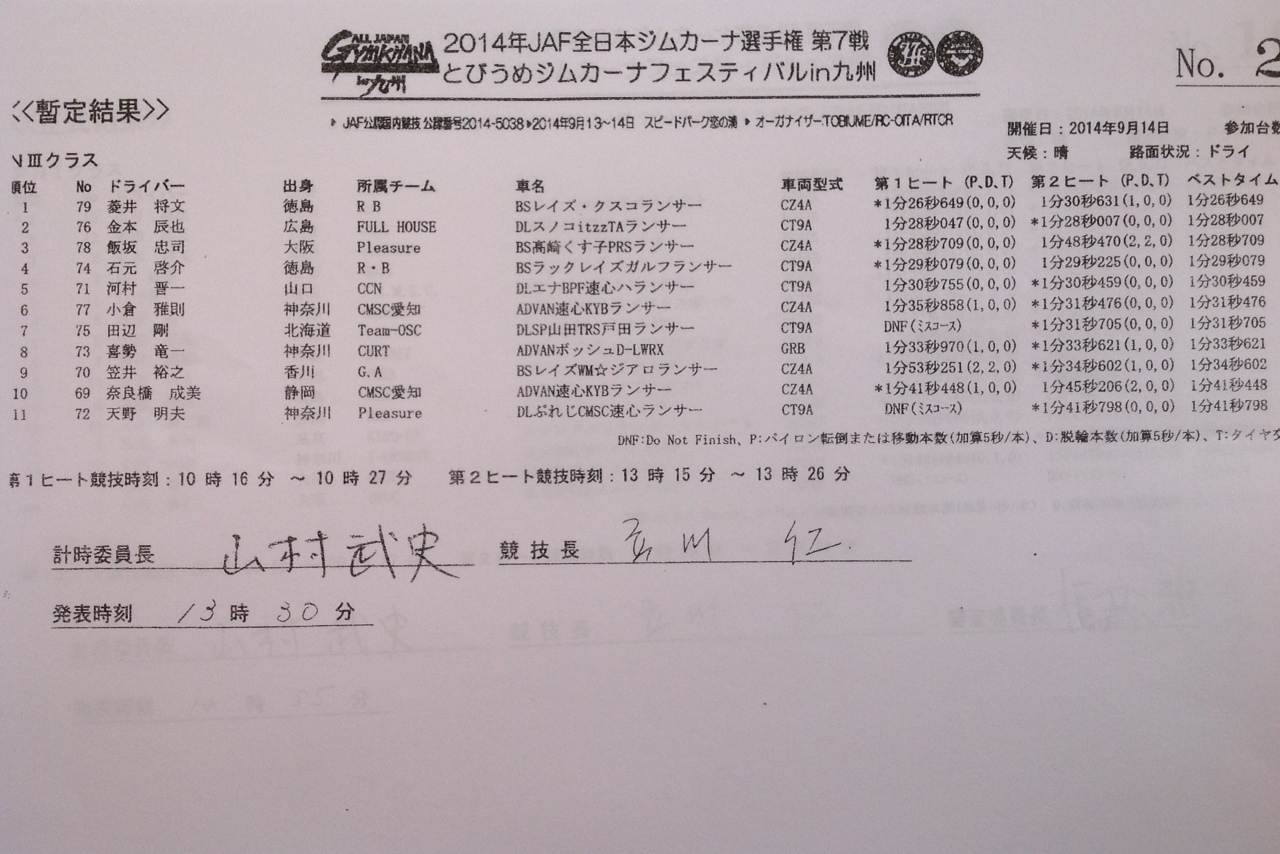 ALL JAPAN GYMKHANA in 九州
2014年JAF全日本ジムカーナ選手権 第7戦
とびうめジムカーナフェスティバルin九州
No. 2
<<暫定結果>>
JAF公認国内競技 公認番号2014-5038 2014年9月13~14日 スピードパーク恋の浦 オーガナイザー:TOBIUME/RC-OITA/RTCR
開催日:2014年9月14日 参加台数
天候:晴 路面状況:ドライ
NⅢクラス
順位 No ドライバー 出身 所属チーム 車名 車両型式 第1ヒート (P,D,T) 第2ヒート (P,D,T) ベストタイム
1 79 菱井 将文 徳島 R B BSレイズ・クスコランサー CZ4A *1分26秒649(0,0,0) 1分30秒631(1,0,0) 1分26秒649
2 76 金本 辰也 広島 FULL HOUSE DLスノコitzzTAランサー CT9A 1分28秒047(0,0,0) *1分28秒007(0,0,0) 1分28秒007
3 78 飯坂 忠司 大阪 Pleasure BS高崎くす子PRSランサー CZ4A *1分28秒709(0,0,0) 1分48秒470(2,2,0) 1分28秒709
4 74 石元 啓介 徳島 R・B BSラックレイズガルフランサー CT9A *1分29秒079(0,0,0) 1分29秒225(0,0,0) 1分29秒079
5 71 河村 晋一 山口 CCN DLエナBPF速心ハランサー CT9A 1分30秒755(0,0,0) *1分30秒459(0,0,0) 1分30秒459
6 77 小倉 雅則 神奈川 CMSC愛知 ADVAN速心KYBランサー CZ4A 1分35秒858(1,0,0) *1分31秒476(0,0,0) 1分31秒476
7 75 田辺 剛 北海道 Team-OSC DLSP山田TRS戸田ランサー CT9A DNF(ミスコース) *1分31秒705(0,0,0) 1分31秒705
8 73 喜勢 竜一 神奈川 CURT ADVANボッシュD-LWRX GRB 1分33秒970(1,0,0) *1分33秒621(1,0,0) 1分33秒621
9 70 笠井 裕之 香川 G.A BSレイズWM☆ジアロランサー CZ4A 1分53秒251(2,2,0) *1分34秒602(1,0,0) 1分34秒602
10 69 奈良橋 成美 静岡 CMSC愛知 ADVAN速心KYBランサー CZ4A *1分41秒448(1,0,0) 1分45秒206(2,0,0) 1分41秒448
11 72 天野 明夫 神奈川 Pleasure DLぷれじCMSC速心ランサー CT9A DNF(ミスコース) *1分41秒798(0,0,0) 1分41秒798
DNF:Do Not Finish、P:パイロン転倒または移動本数(加算5秒/本)、D:脱輪本数(加算5秒/本)、T:タイヤ交
第1ヒート競技時刻:10 時 16 分 ~ 10 時 27 分 第2ヒート競技時刻:13 時 15 分 ~ 13 時 26 分
計時委員長 山村武史 競技長 川 仁
発表時刻 13時30分